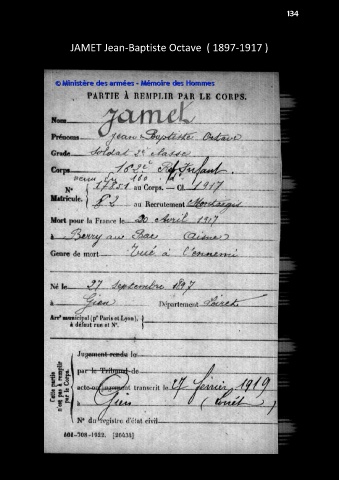 134
JAMET Jean-Baptiste Octave ( 1897-1917 )
© Ministère des armées - Mémoire des Hommes
PARTIE À REMPLIR PAR LE CORPS.
Nom Jamet
Prénoms Jean Baptiste Octave
Grade Soldat 2e classe
Corps 162e Rgt d'Infant.
venu du 160e
N° 17851 au Corps. — Cl. 1917
Matricule. 82 au Recrutement Montargis
Mort pour la France le 20 Avril 1917
à Berry au Bac Aisne
Genre de mort Tué à l'ennemi
Né le 27 Septembre 1897
à Gien Département Loiret
Arr¹ municipal (pr Paris et Lyon),
à défaut rue et N°.
Cette partie
n'est pas à remplir
par le Corps.
Jugement rendu le
par le Tribunal de
acte ou jugement transcrit le 27 février 1919
à Gien (Loiret)
N° du registre d'état civil
534-708-1922. [26434]